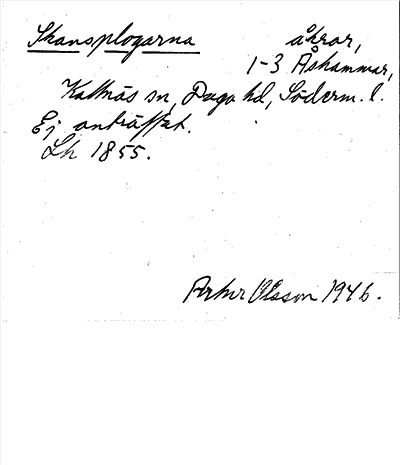 Skansplogarna åkrar,
1-3 Åshammar,
Kattnäs sn, Daga hd, Söderm. l.
Ej anträffat.
Lh 1855.
Arthur Olsson 1946.